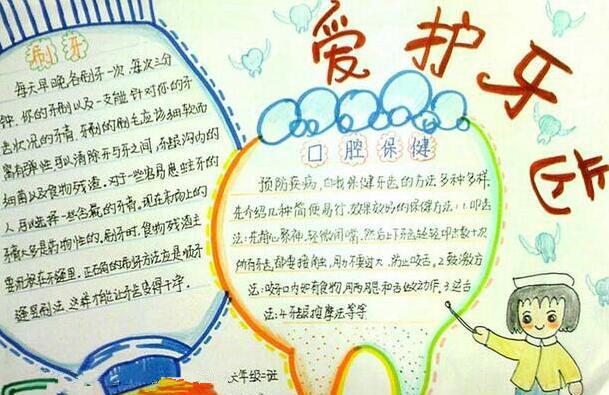 爱护牙齿
刷牙
每天早晚各刷牙一次,每次三分
钟,你的牙刷以及一支能针对你的牙
齿状况的牙膏,牙刷的刷毛应该细软而
富有弹性可以清除牙与牙之间,牙龈沟内的
细菌以及食物残渣,对于一些容易患蛀牙的
人可以选择一些含氟的牙膏,现在市场上的
牙膏大多是药物性的,刷牙时,食物残渣主
要残存在牙缝里,正确的刷牙方法应是顺牙
缝里刷法,这样才能让牙齿变得干净。
口腔保健
预防疾病,自我保健牙齿的方法多种多样,
先介绍几种简便易行,效果较好的保健方法:1.叩齿
法:先静心聚神,轻微闭嘴,然后上下牙齿轻轻叩击数十次
所有牙齿都要接触,用力不要过大,防止咬舌。2.鼓漱方
法:4.牙龈按摩法等等
六年级二班